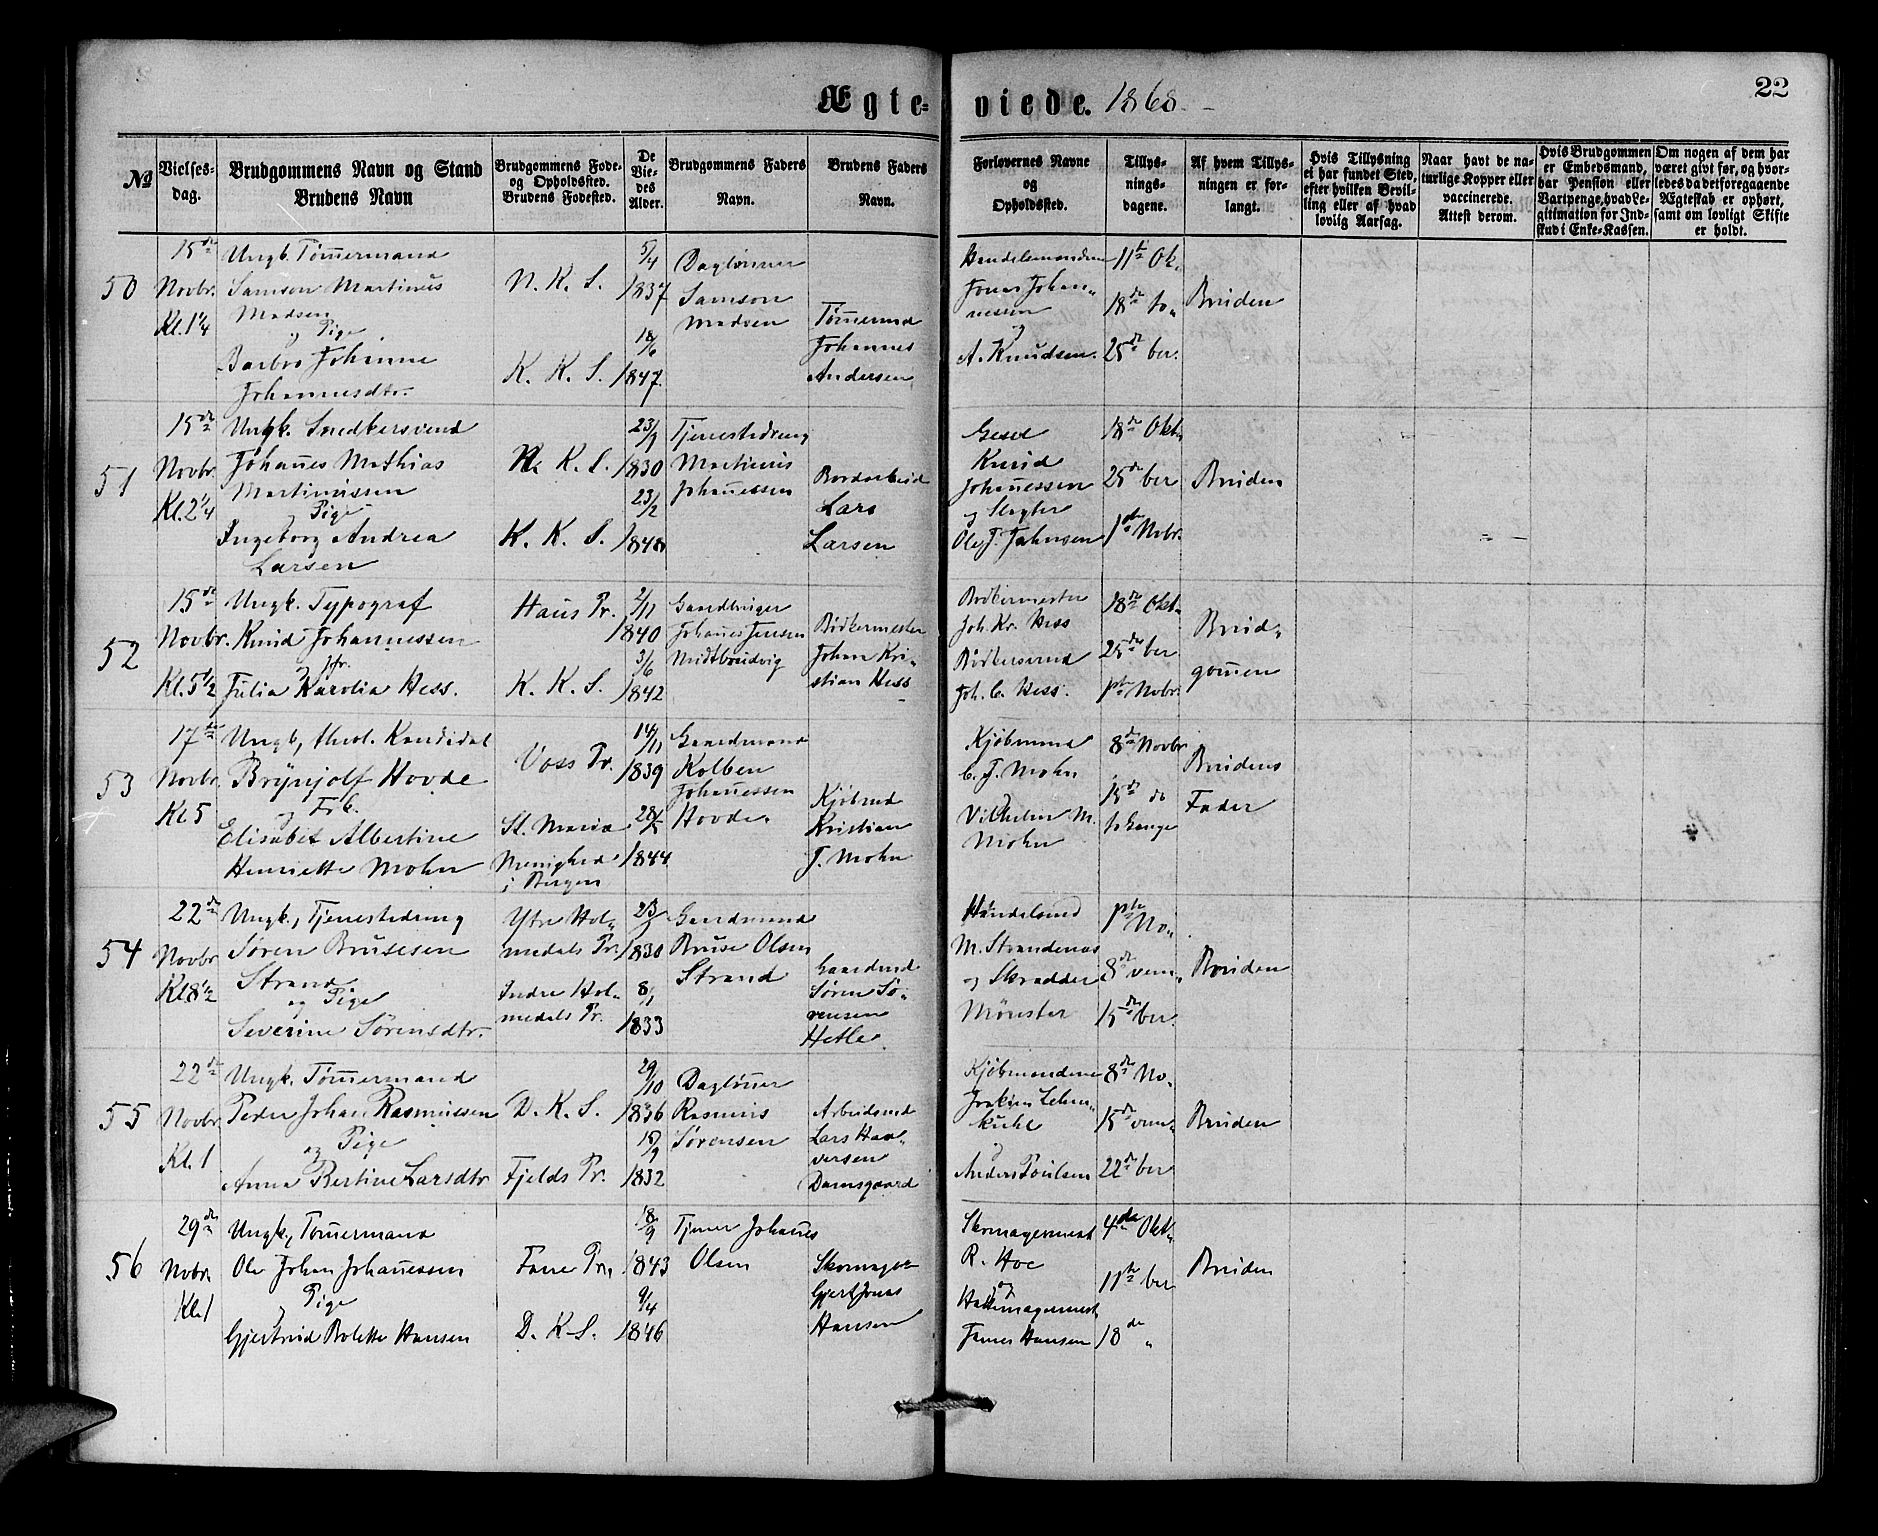 Ægte-
viede. 1868.
22
No
Vielses-
dag.
Brudgommens Navn og Stand
Brudens Navn
Brudgommens Føde-
og Opholdssted.
Brudens Fødested.
De
Vie-
des
Alder.
Brudgommens Faders
Navn.
Brudens Faders
Navn.
Forlovernes Navne
og
Opholdssted.
Tillys-
nings-
dagene.
Af hvem Tillys-
ningen er for-
langt.
Hvis Tillysning
ei har fundet Sted,
efter hvilken Bevil-
ling eller af hvad
lovlig Aarsag.
Naar havt de na-
turlige Kopper eller
vaccinerede.
Attest derom.
Hvis Brudgommen
er Embedsmand,
har Pension eller
Vartpenge, hvad Le-
gitimation for Ind-
skud i Enke-Kassen.
Om nogen af dem har
været givt før, og hvor-
ledes da det foregaaende
Ægteskab er ophørt,
samt om lovligt Skifte
er holdt.
50
15de
Novbr.
Kl. 1 1/4
Ungk. Tømermand
Samson Martinus
Madsen
og Pige
Barbro Johanne
Johannesdtr.
N. K. S.
K. K. S.
5/4
1837
18/6
1847.
Daglønner
Samson
Madsen
Tømermd
Johannes
Andersen
Handelsmanden
Jonas Johan-
nessen
og
A. Knudsen.
11te Ok-
18de to-
25de ber.
Bruden
51
15de
Novbr.
Kl. 2 1/4
Ungk. Snedkersvend
Johanes Mathias
Martinussen
og Pige
Ingeborg Andrea
Larsen
N. K. S.
K. K. S.
23/9
1830
23/2
Tjenestedreng
Martinus
Johanessen
Bordarbeid
Lars
Larsen
Knud
Johanessen
og Slagter
Ole J. Johnsen
18de Okt-
25de ber
1ste Novbr.
Bruden
52
15de
Novbr.
Kl. 5 1/2
Ungk. Typograf
Knud Johannessen
og Jfr.
Julia Karolia Hess.
Haus Pr.
K. K. S.
2/11
1840
3/6
1842
Gaardbruger
Johanes Jensen
Midtbrudvig
Bødkermester
Johan Kri-
stian Hess
Bødkermester
Joh. Kr. Hess
Bødkersvend
Joh. C. Hess.
18de Okt-
25de ber
1ste Novbr.
Brud-
gomen
53
17de
Novbr.
Kl. 5
Ungk, theol. Kandidat
Brynjolf Hovde
og Frk.
Elisabet Albertine
Henriette Mohn
Voss Pr.
St. Maria
Menighed
i Bergen
14/11
1839
28/5
1844
Gaardmand
Kolben
Johanessen
Hovde.
Kjøbmd
Kristian
J. Mohn
Kjøbmand
C. J. Mohn
og
Vilhelm M.
Mohn
8de Novbr
15de do
to Gange
Brudens
Fader
54
22de
Novbr
Kl 8 1/2
Ungk, Tjenestedreng
Søren Brusesen
Strand
og Pige
Severine Sørensdtr.
Ytre Hol-
medals Pr.
Indre Hol-
medals Pr.
1830
8/1
1833
Gaardmand
Bruse Olsen
Strand
Gaardmd
Søren Sø-
rensen
Hetle
Handelsmd
M. Strandenas
og Skrædder
Mønster
1ste No-
8de vem-
15de ber.
Bruden
55
22de
Novbr
Kl. 1
Ungk. Tømermand
Peder Johan Rasmussen
og Pige
Anna Bertine Larsdtr
D. K. S.
Fjelds Pr.
29/10
1836
15/9
1832
Dagløner
Rasmus
Sørensen
Arbeidsmd
Lars Haa-
versen
Damsgaard
Kjøbmandene
Joakim Lehm-
kuhl
og
Anders Poulsen
8de No-
15de vem-
22de ber
Bruden
56
29de
Novbr.
Kl. 1
Ungk, Tømermand
Ole Johan Johanessen
og Pige
Gjertrud Bolette Hansen
Fane Pr.
D. K. S.
18/9
1843
9/4
1846
Tjener Johanes
Olsen
Skomager
Gjert Jonas
Hansen
Skomagermest
R. Hoe
og
Hattemagermest
James Hansen
4de Okt-
11te ber
18de "
Bruden